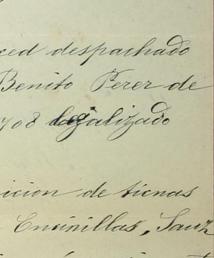 ced despachado
Benito Perez de
708 legalizado
icion de tienas
Encinillas, Sauz